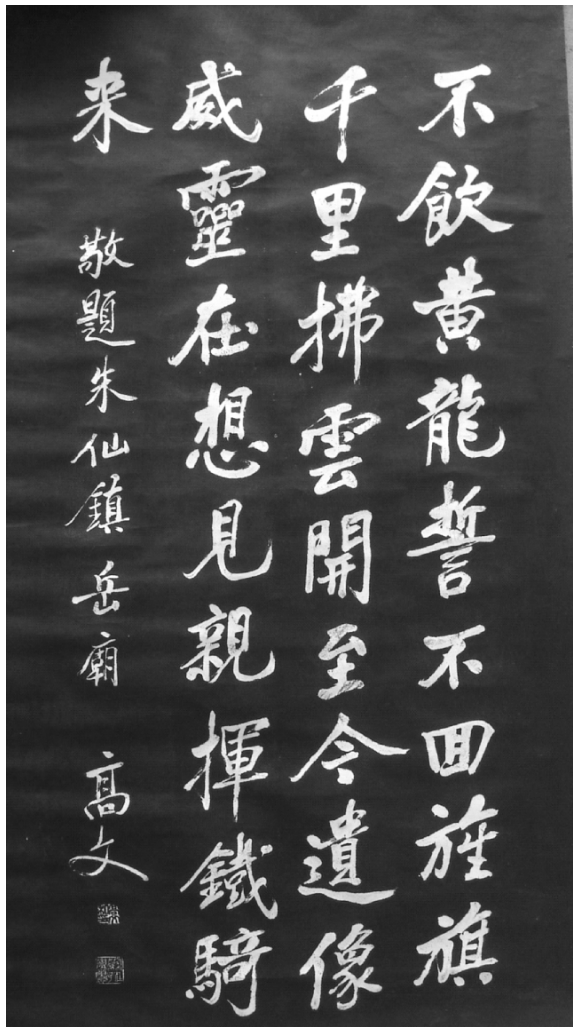 不飲黄龍誓不回旌旗
千里拂雲開至今遺像
威靈在想見親揮鐵騎
来
敬題朱仙鎮岳廟
高文